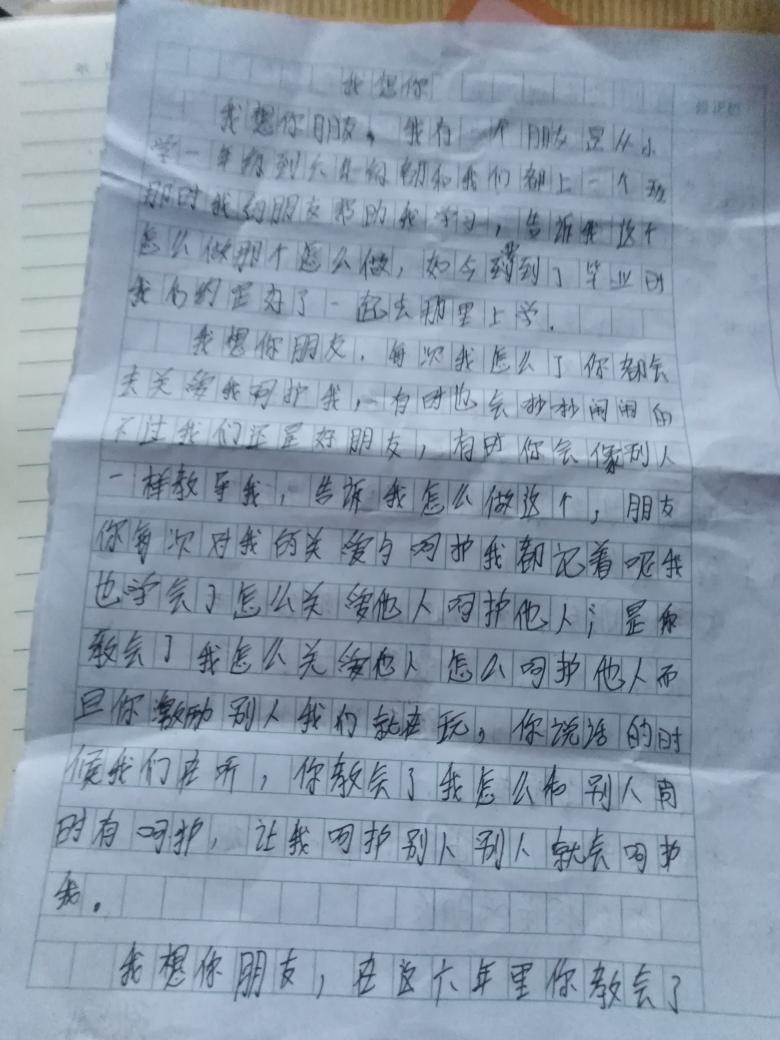 我想你
我想你朋友，我有一个朋友是从小
学一年级到六年级 和我们都上一个班
那时我的朋友帮助我学习，告诉我这个
怎么做那个怎么做，如今 到了毕业时
我们约定好了一起去 里上学.
我想你朋友.每次我怎么了你都会
去关爱我呵护我，有时也会吵吵闹闹的
不过我们还是好朋友，有时你会像别人
一样教导我，告诉我怎么做这个，朋友
你每次对我的关爱与呵护我都记着呢我
也学会了怎么关爱他人呵护他人；是你
教会了我怎么关爱他人怎么呵护他人而
且你激励别人我们就在玩，你说话的时
候我们在听，你教会了我怎么和别人 
时有呵护，让我呵护别人别人就会呵护
我。
我想你朋友，在这六年里你教会了